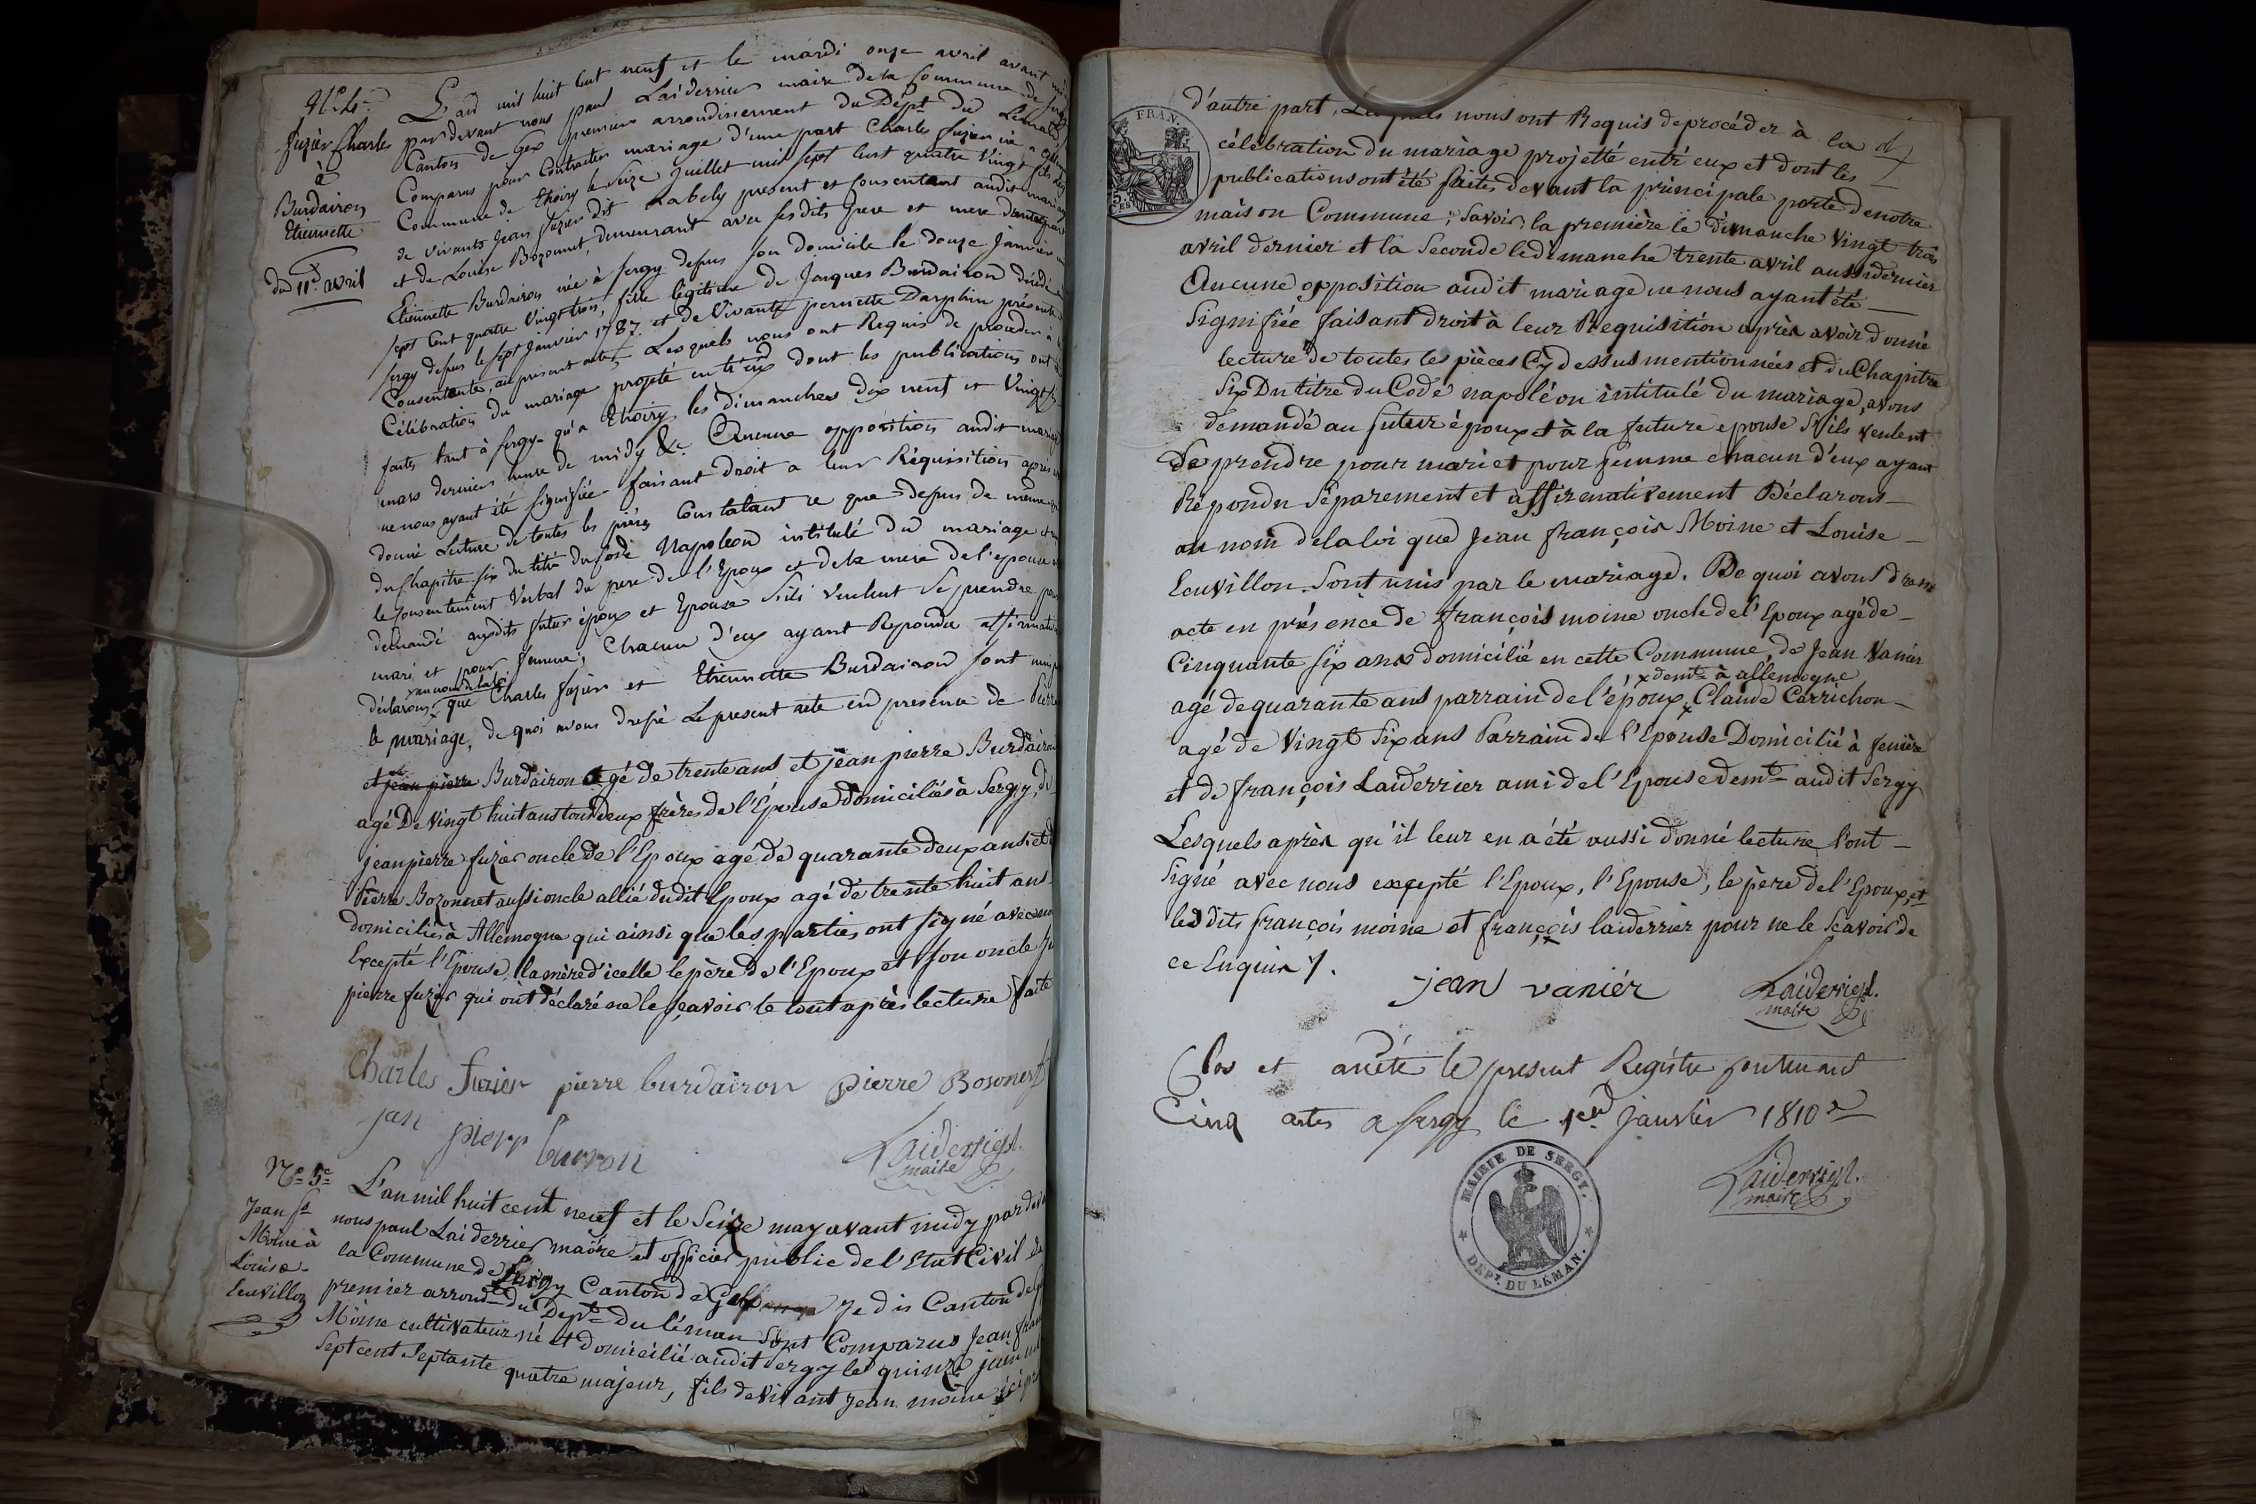 N.o 4.e
fuzier Charles
à
Burdairon
Etiennette
du 11.e avril
L'an mil huit cent neuf et le mardi onze avril avant
par devant nous paul Laiderrier maire de la Commune de
Canton de Gex premier arrondissement du Dép.t du Leman
Comparus pour Contracter mariage d'une part Charles fuzier né
Commune de thoiry le seize Juillet mil sept cent quatre vingt
de vivants Jean fuzier dit Labely present et Consentant audit
et de Louise Bozonnet, demeurant avec ses dits pere et mere
Etiennette Burdairon née à sergy depuis son domicile le douze Janvier
sept cent quatre vingt trois, fille légitime de Jacques Burdairon
sergy depuis le sept Janvier 1787. et de Vivante pernette Dauphin présente
Consentante, au present acte, Lesquels nous ont Requis de proceder à
Célébration du mariage projeté entr'eux dont les publications ont
faites tant à sergy qu'a thoiry les dimanches dix neuf et vingt
mars dernier heure de midy &.a Aucune opposition audit
ne nous ayant été signifiée faisant droit a leur Réquisition après
donné Lecture de toutes les pièces Constatant ce que depus de même
du Chapitre six du titre du Code Napoleon intitulé du mariage
le Consentement verbal du pere de l'Epoux et de la mere de l'epouse
demandé auxdits futur époux et Epouse s'ils veulent se prendre
mari et pour femme; Chacun d'eux ayant Répondu
x au nom de la loi
déclarons x que Charles fuzier et Etiennette Burdairon sont
le mariage, de quoi avons dressé Le present acte en presence de
et jean pierre Burdairon agé de trente ans et jean pierre
agé De vingt huit ans tous deux frères de l'Epouse domiciliés à Sergy, de
jean pierre fuzier oncle de l'Epoux agé de quarante deux ans et
Pierre Bozonnet aussi oncle allié dudit Epoux agé de trente huit ans
domiciliés à Allemogne qui ainsi que les parties ont signé avec
Excepté l'Epouse, la mère d'icelle le père de l'Epoux et son oncle
pierre fuzier qui ont déclaré ne le sçavoir le tout après lecture faite
Charles fuzier pierre burdairon pierre Bosonnet
jan pierr
Laiderrier
maire
N.o 5.e
Jean f.s
Moine à
Louise
Leuvillon
L'an mil huit cent neuf et le Seize may avant midy
nous paul Laiderrier maire et officier public de l'Etat Civil de
la Commune de Sergy Canton de Je dis Canton de
premier arrond.t du Dép.t du léman Sont Comparus Jean
Moine cultivateur né et domicilié audit sergy le quinze juin
Sept cent Septante quatre majeur, fils de vivant Jean moine
FRAN.
d'autre part, Lesquels nous ont Requis de procéder à la
célébration du mariage projetté entr'eux et dont les
publications ont été faites devant la principale porte de notre
maison Commune; Savoir, la première le dimanche vingt trois
avril dernier et la Seconde le dimanche trente avril aussi dernier
Aucune opposition audit mariage ne nous ayant été
Signifiée faisant droit à leur Requisition après avoir donné
lecture de toutes les pièces Cy dessus mentionnées et du Chapitre
Six Du titre du Code napoléon intitulé du mariage, avons
demandé au futur époux et à la future epouse S'ils veulent
Se prendre pour mari et pour femme chacun d'eux ayant
Répondu Séparement et affirmativement Déclarons
au nom de la loi que Jean françois Moine et Louise
Leuvillon Sont unis par le mariage. De quoi avons dressé
acte en présence de françois moine oncle de l'Epoux agé de
Cinquante six ans domicilié en cette Commune, de Jean Vanier
x dem.t à allemogne
agé de quarante ans parrain de l'époux x Claude Carrichon
agé de Vingt Six ans Parrain de l'Epouse Domicilié à fenière
et de françois Laiderrier ami de l'Epouse dem.t audit Sergy
Lesquels après qu'il leur en a été aussi donné lecture l'ont
Signé avec nous excepté l'Epoux, l'Epouse, le père de l'Epoux, et
les dits françois moine et françois laiderrier pour ne le Sçavoir de
ce Enquis.
jean vanier
Laiderrier
maire
Clos et arrêté le present Registre contenant
Cinq actes a sergy le 1.er Janvier 1810
MAIRIE DE SERGY.
DEP.T DU LEMAN.
Laiderrier
maire